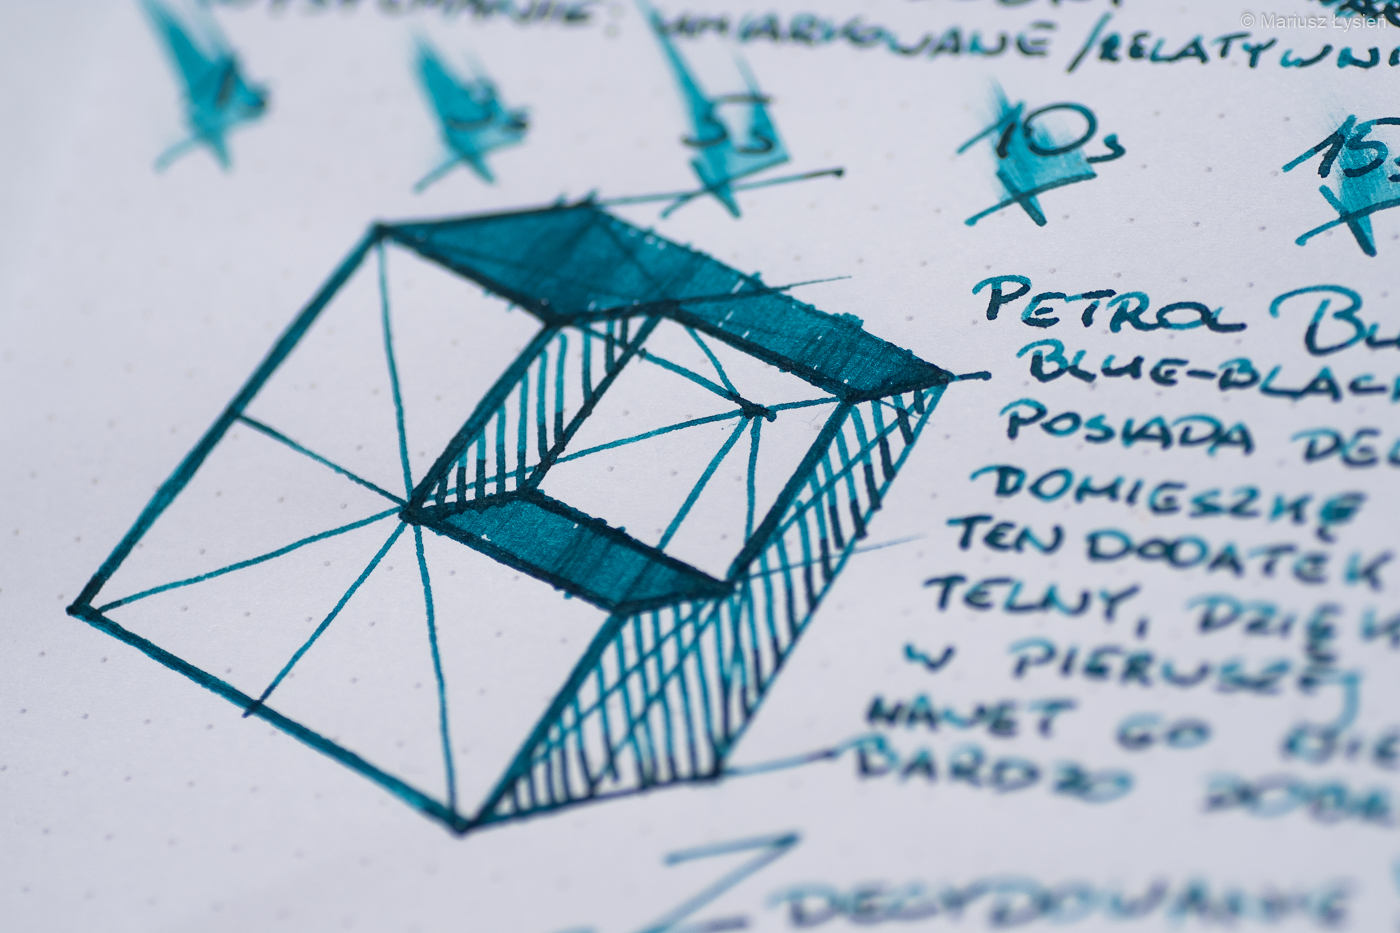 © Mariusz Łysień
UMIARKOWANE / RELATYWNI
5s 10s 15s
PETROL BL
BLUE-BLAC
POSIADA DEL
DOMIESZKĘ
TEN DODATEK
TELNY, DZIĘK
W PIERWSZEJ
NAWET GO NIE
BARDZO DOBR
ZDECYDOWANIE